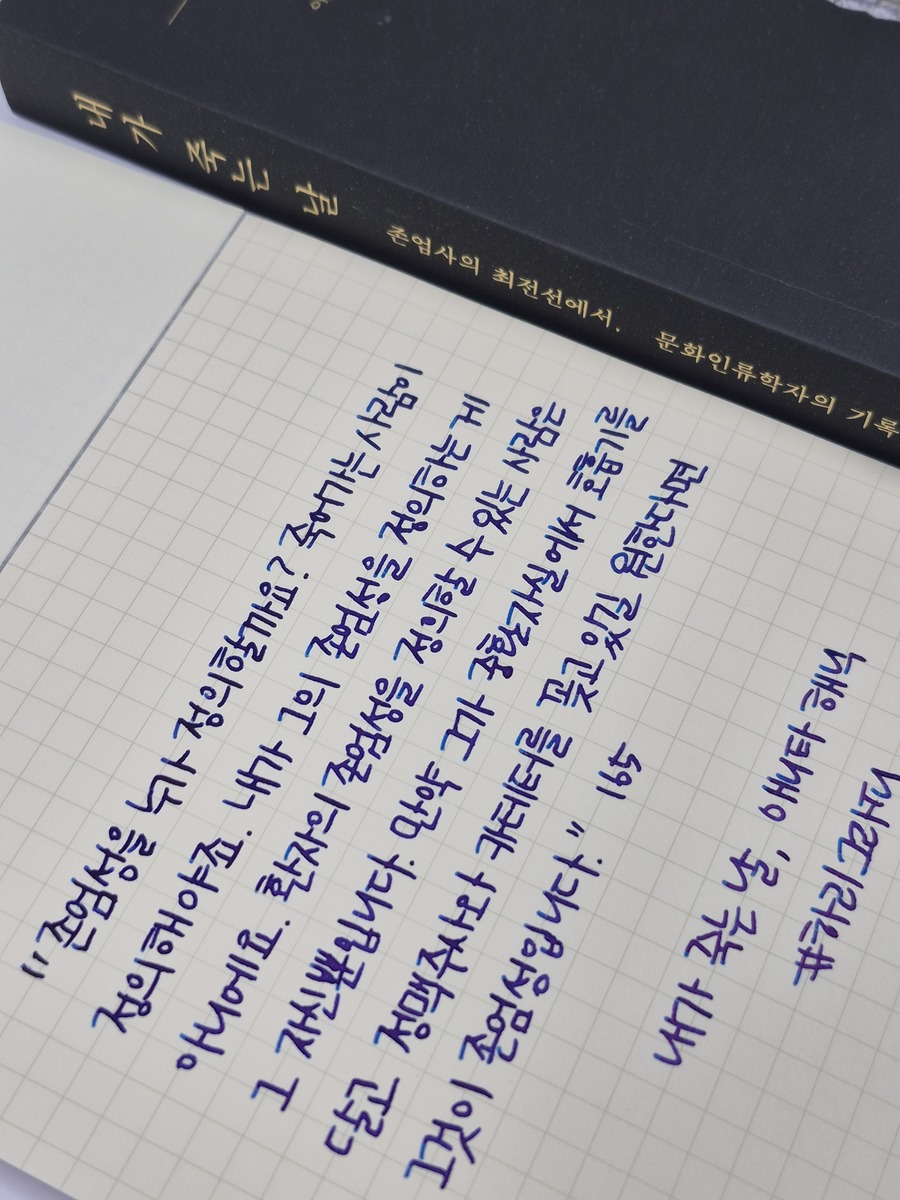 내가 죽는 날
존엄사의 최전선에서. 문화인류학자의 기록
"존엄성을 누가 정의할까요? 죽어가는 사람이
정의해야죠. 내가 그의 존엄성을 정의하는 게
아니에요. 환자의 존엄성을 정의할 수 있는 사람은
그 자신뿐입니다. 만약 그가 중환자실에서 호흡기를
달고 정맥주사와 카테터를 꼽고 있길 원한다면
그것이 존엄성입니다." 195
내가 죽는 날, 애니타